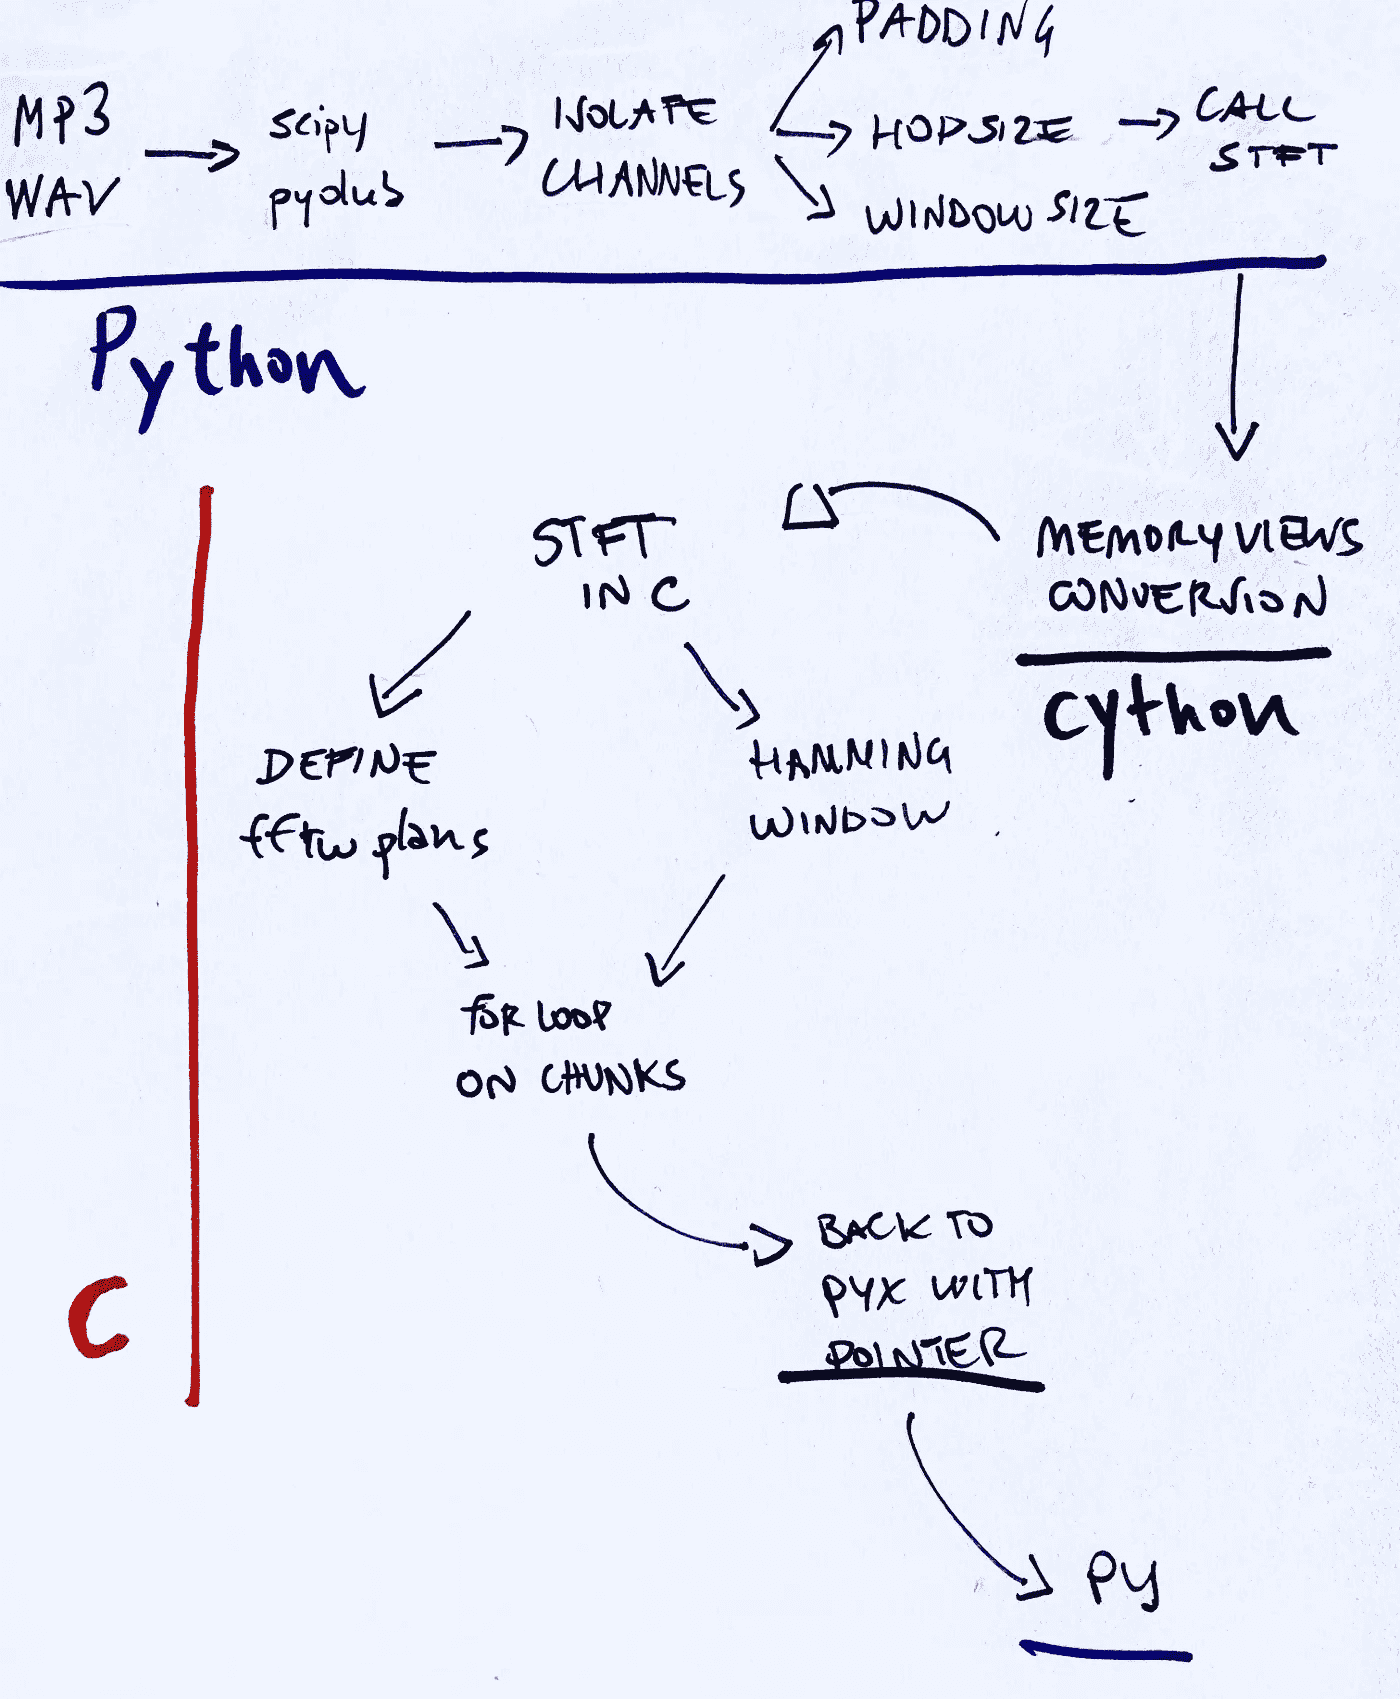 MP3
WAV
scipy
pydub
ISOLATE
CHANNELS
PADDING
HOPSIZE
WINDOW SIZE
CALL
STFT
Python
MEMORYVIEWS
CONVERSION
cython
STFT
IN C
DEFINE
fftw plans
HAMMING
WINDOW
for LOOP
ON CHUNKS
C
BACK TO
PYX WITH
POINTER
PY